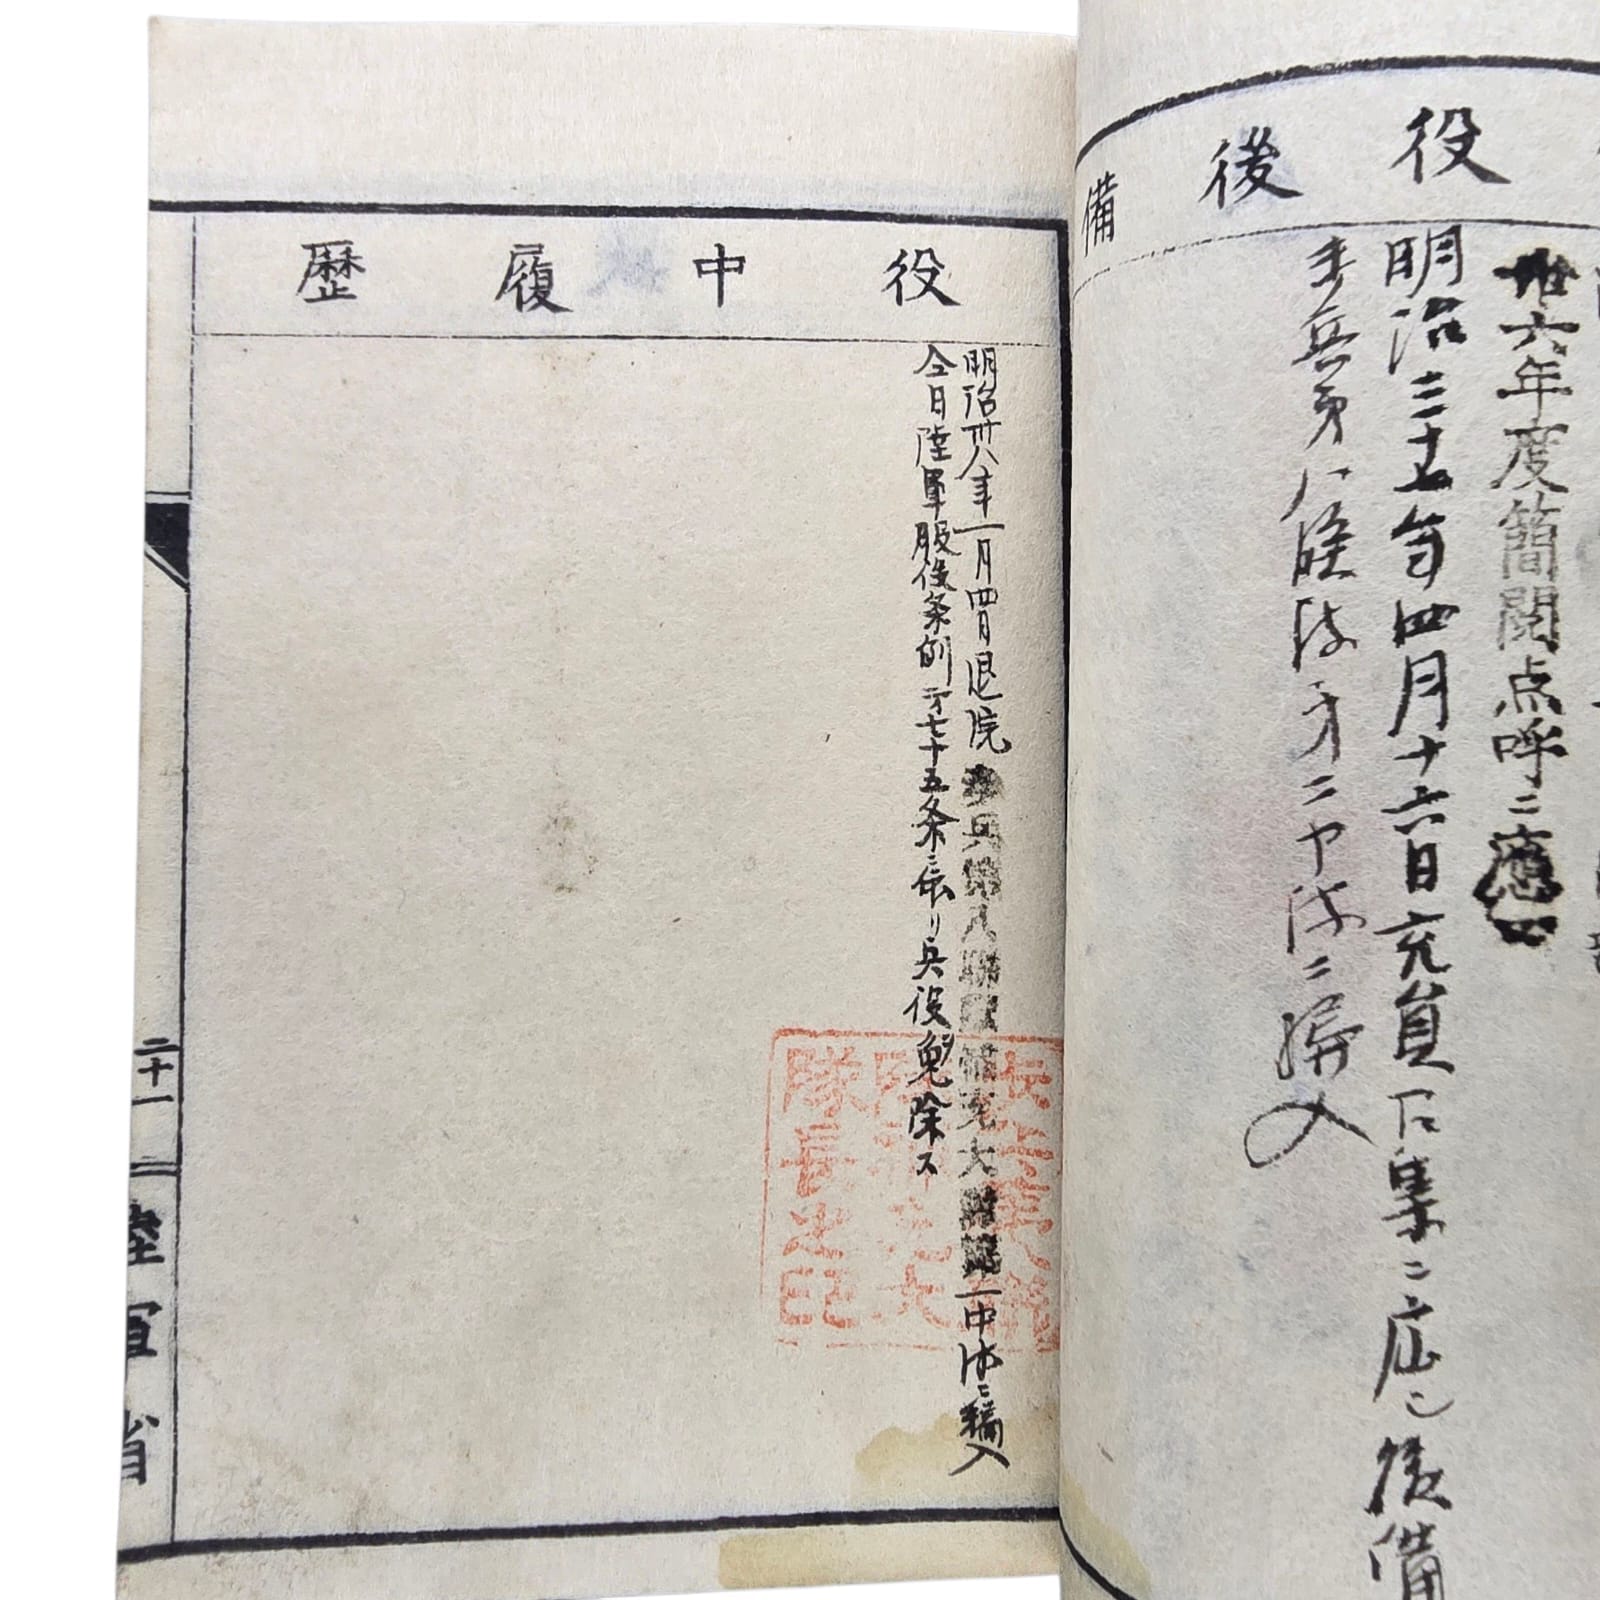 役後備
卅六年度簡閲点呼ニ應
明治三十七年四月十六日充員召集ニ応シ後備
歩兵第八聯隊第二中隊ニ編入
役中履歴
明治卅八年一月四日退院歩兵第八聯隊補充大隊第一中隊ニ編入
仝日陸軍服役条例第七十五条ニ依リ兵役免除ス
隊長之印
二十一
陸軍省